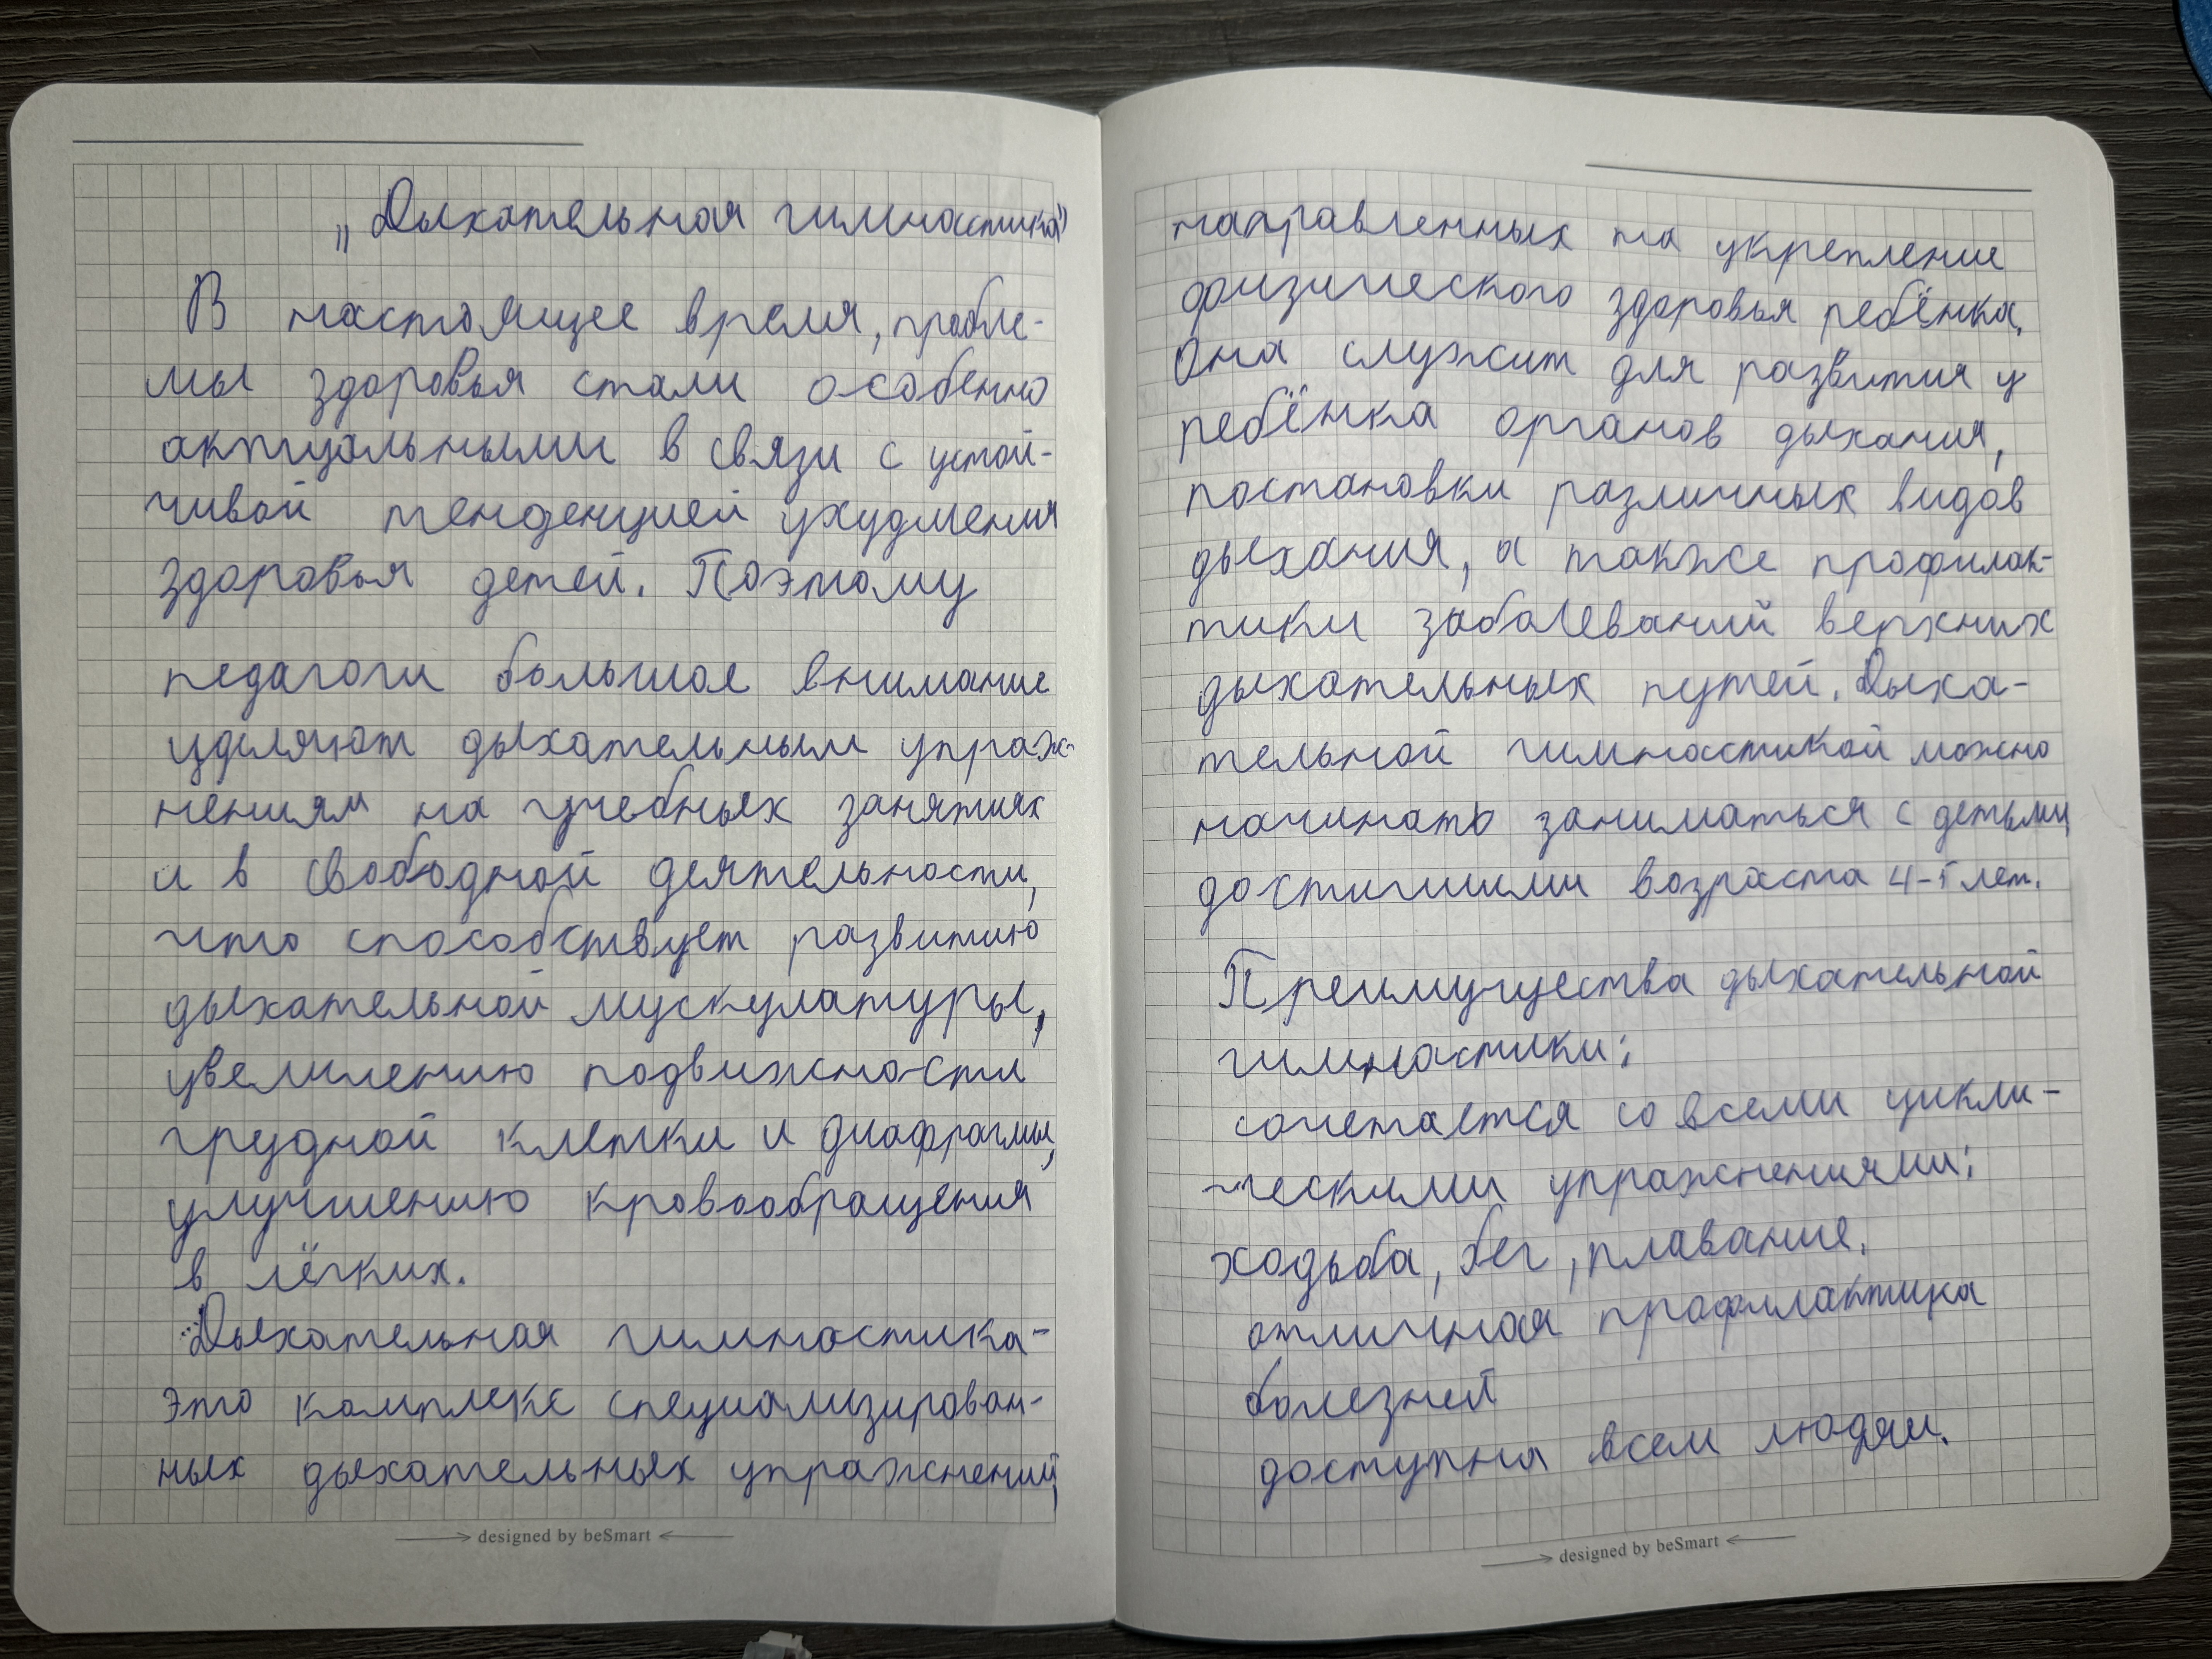 „Дыхательная гимнастика"
В настоящее время, пробле-
мы здоровья стали особенно
актуальными в связи с устой-
чивой тенденцией ухудшения
здоровья детей. Поэтому
педагоги большое внимание
уделяют дыхательным упраж-
нениям на учебных занятиях
и в свободной деятельности,
что способствует развитию
дыхательной мускулатуры,
увеличению подвижности
грудной клетки и диафрагмы,
улучшению кровообращения
в лёгких.
Дыхательная гимнастика-
это комплекс специализирован-
ных дыхательных упражнений,
designed by beSmart
направленных на укрепление
физического здоровья ребёнка.
Она служит для развития у
ребёнка органов дыхания,
постановки различных видов
дыхания, а также профилак-
тики заболеваний верхних
дыхательных путей. Дыха-
тельной гимнастикой можно
начинать заниматься с детьми
достигшими возраста 4-5 лет.
Преимущества дыхательной
гимнастики:
сочетается со всеми цикли-
ческими упражнениями:
ходьба, бег, плавание.
отличная профилактика
болезней
доступна всем людям.
designed by beSmart